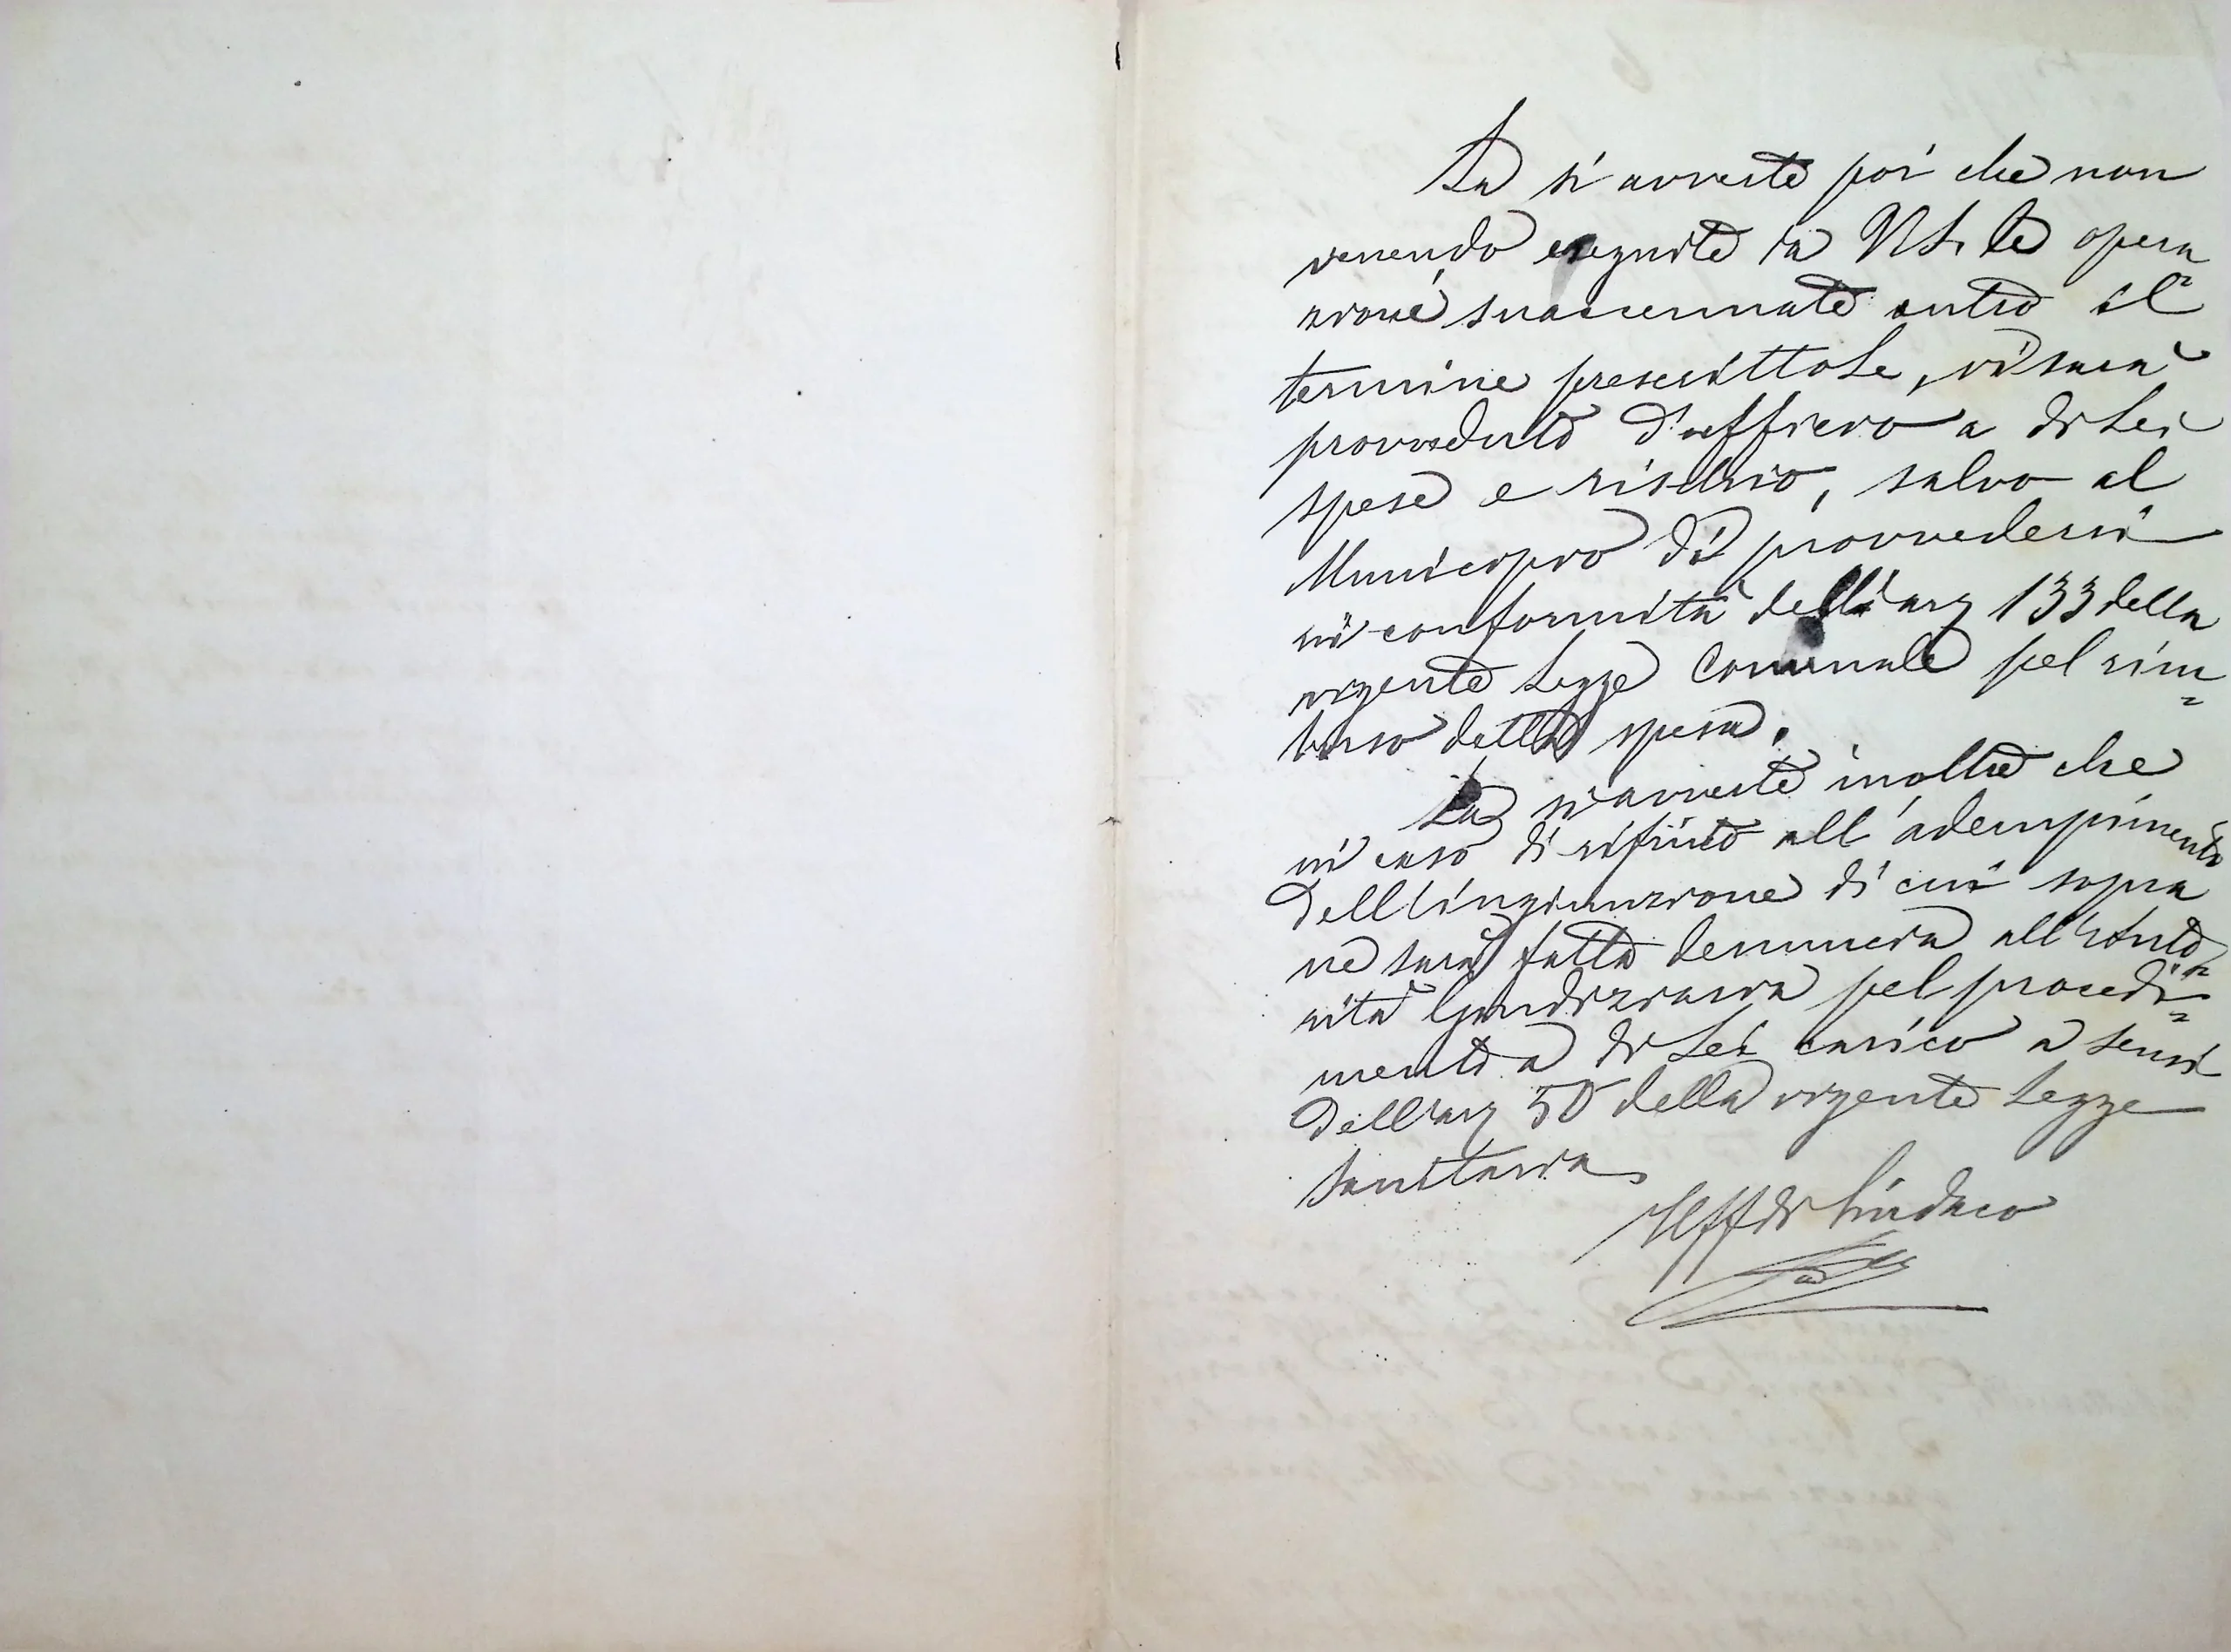 La si avverte poi che non
venendo eseguite da V.S. le opera
zioni suaccennate entro il
termine prescrittole, vi sarà
provveduto d'uffizio a di Lei
spese e rischio, salvo al
Municipio di provvedersi
in conformità dell'art 133 della
vigente Legge Comunale pel rim=
borso della spesa.
La si avverte inoltre che
in caso di rifiuto all'adempimento
dell'ingiunzione di cui sopra
ne sarà fatta denuncia all'Auto=
rità Giudiziaria pel procedi=
mento a di Lei carico a sensi
dell'art 50 della vigente Legge
Sanitaria
Il ff di Sindaco